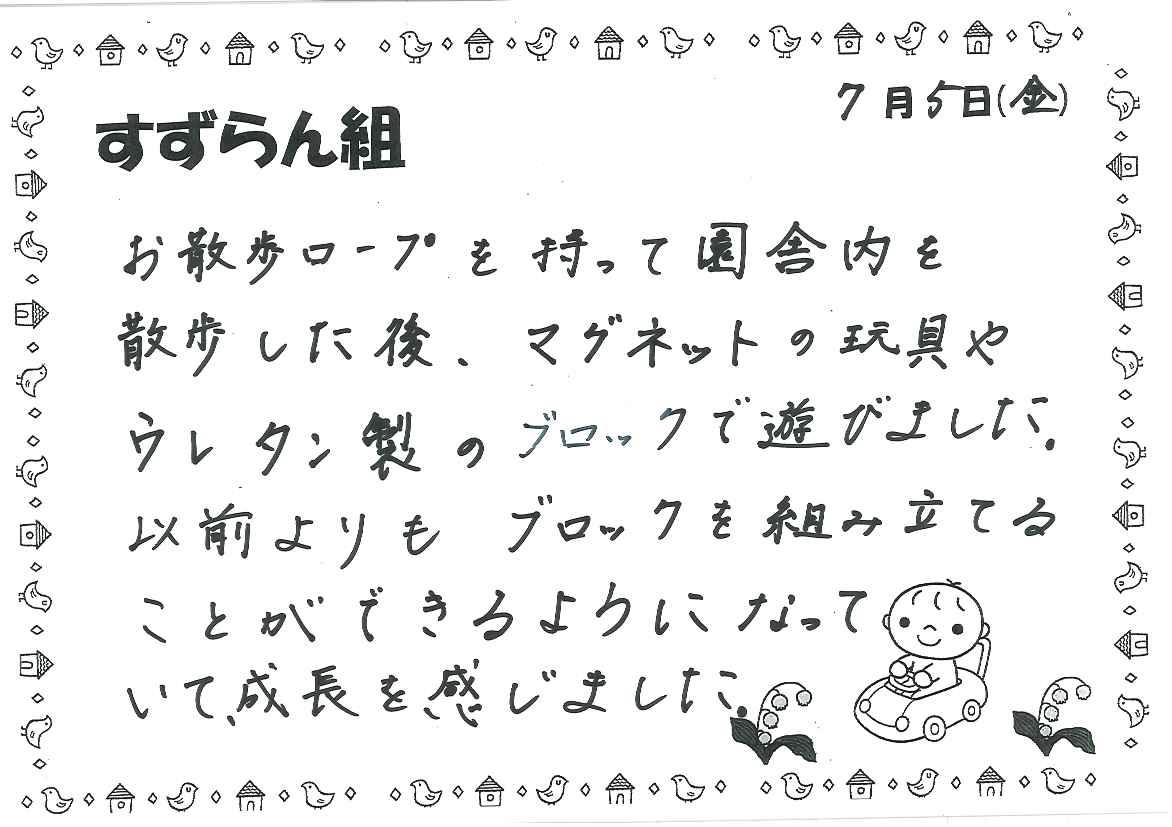 7月5日(金)
すずらん組
お散歩ロープを持って園舎内を
散歩した後、マグネットの玩具や
ウレタン製のブロックで遊びました。
以前よりもブロックを組み立てる
ことができるようになって
いて、成長を感じました。